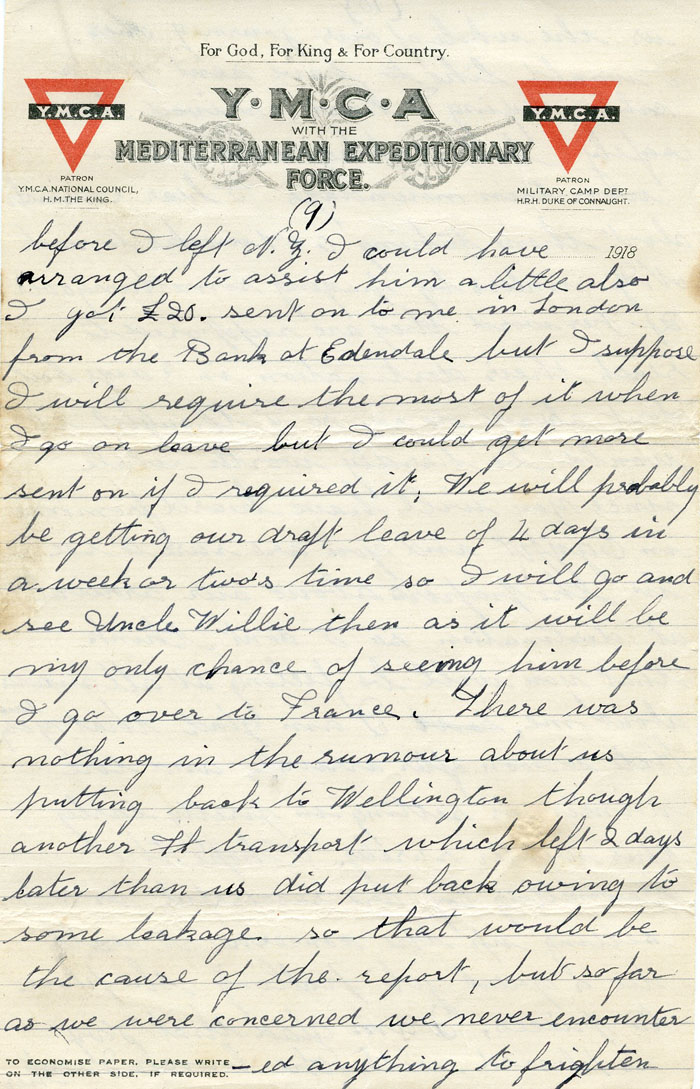 For God, For King & For Country.
Y·M·C·A
Y.M.C.A.
Y.M.C.A.
WITH THE
MEDITERRANEAN EXPEDITIONARY
FORCE.
PATRON
Y.M.C.A. NATIONAL COUNCIL,
H.M. THE KING.
PATRON
MILITARY CAMP DEPT
H.R.H. DUKE OF CONNAUGHT.
(9)
before I left N.Z. I could have 1918
arranged to assist him a little also
I got £20. sent on to me in London
from the Bank at Edendale but I suppose
I will require the most of it when
I go on leave but I could get more
sent on if I required it. We will probably
be getting our draft leave of 4 days in
a week or two's time so I will go and
see Uncle Willie then as it will be
my only chance of seeing him before
I go over to France. There was
nothing in the rumour about us
putting back to Wellington though
another transport which left 2 days
later than us did put back owing to
some leakage so that would be
the cause of the report, but so far
as we were concerned we never encounter
-ed anything to frighten
TO ECONOMISE PAPER, PLEASE WRITE
ON THE OTHER SIDE, IF REQUIRED.